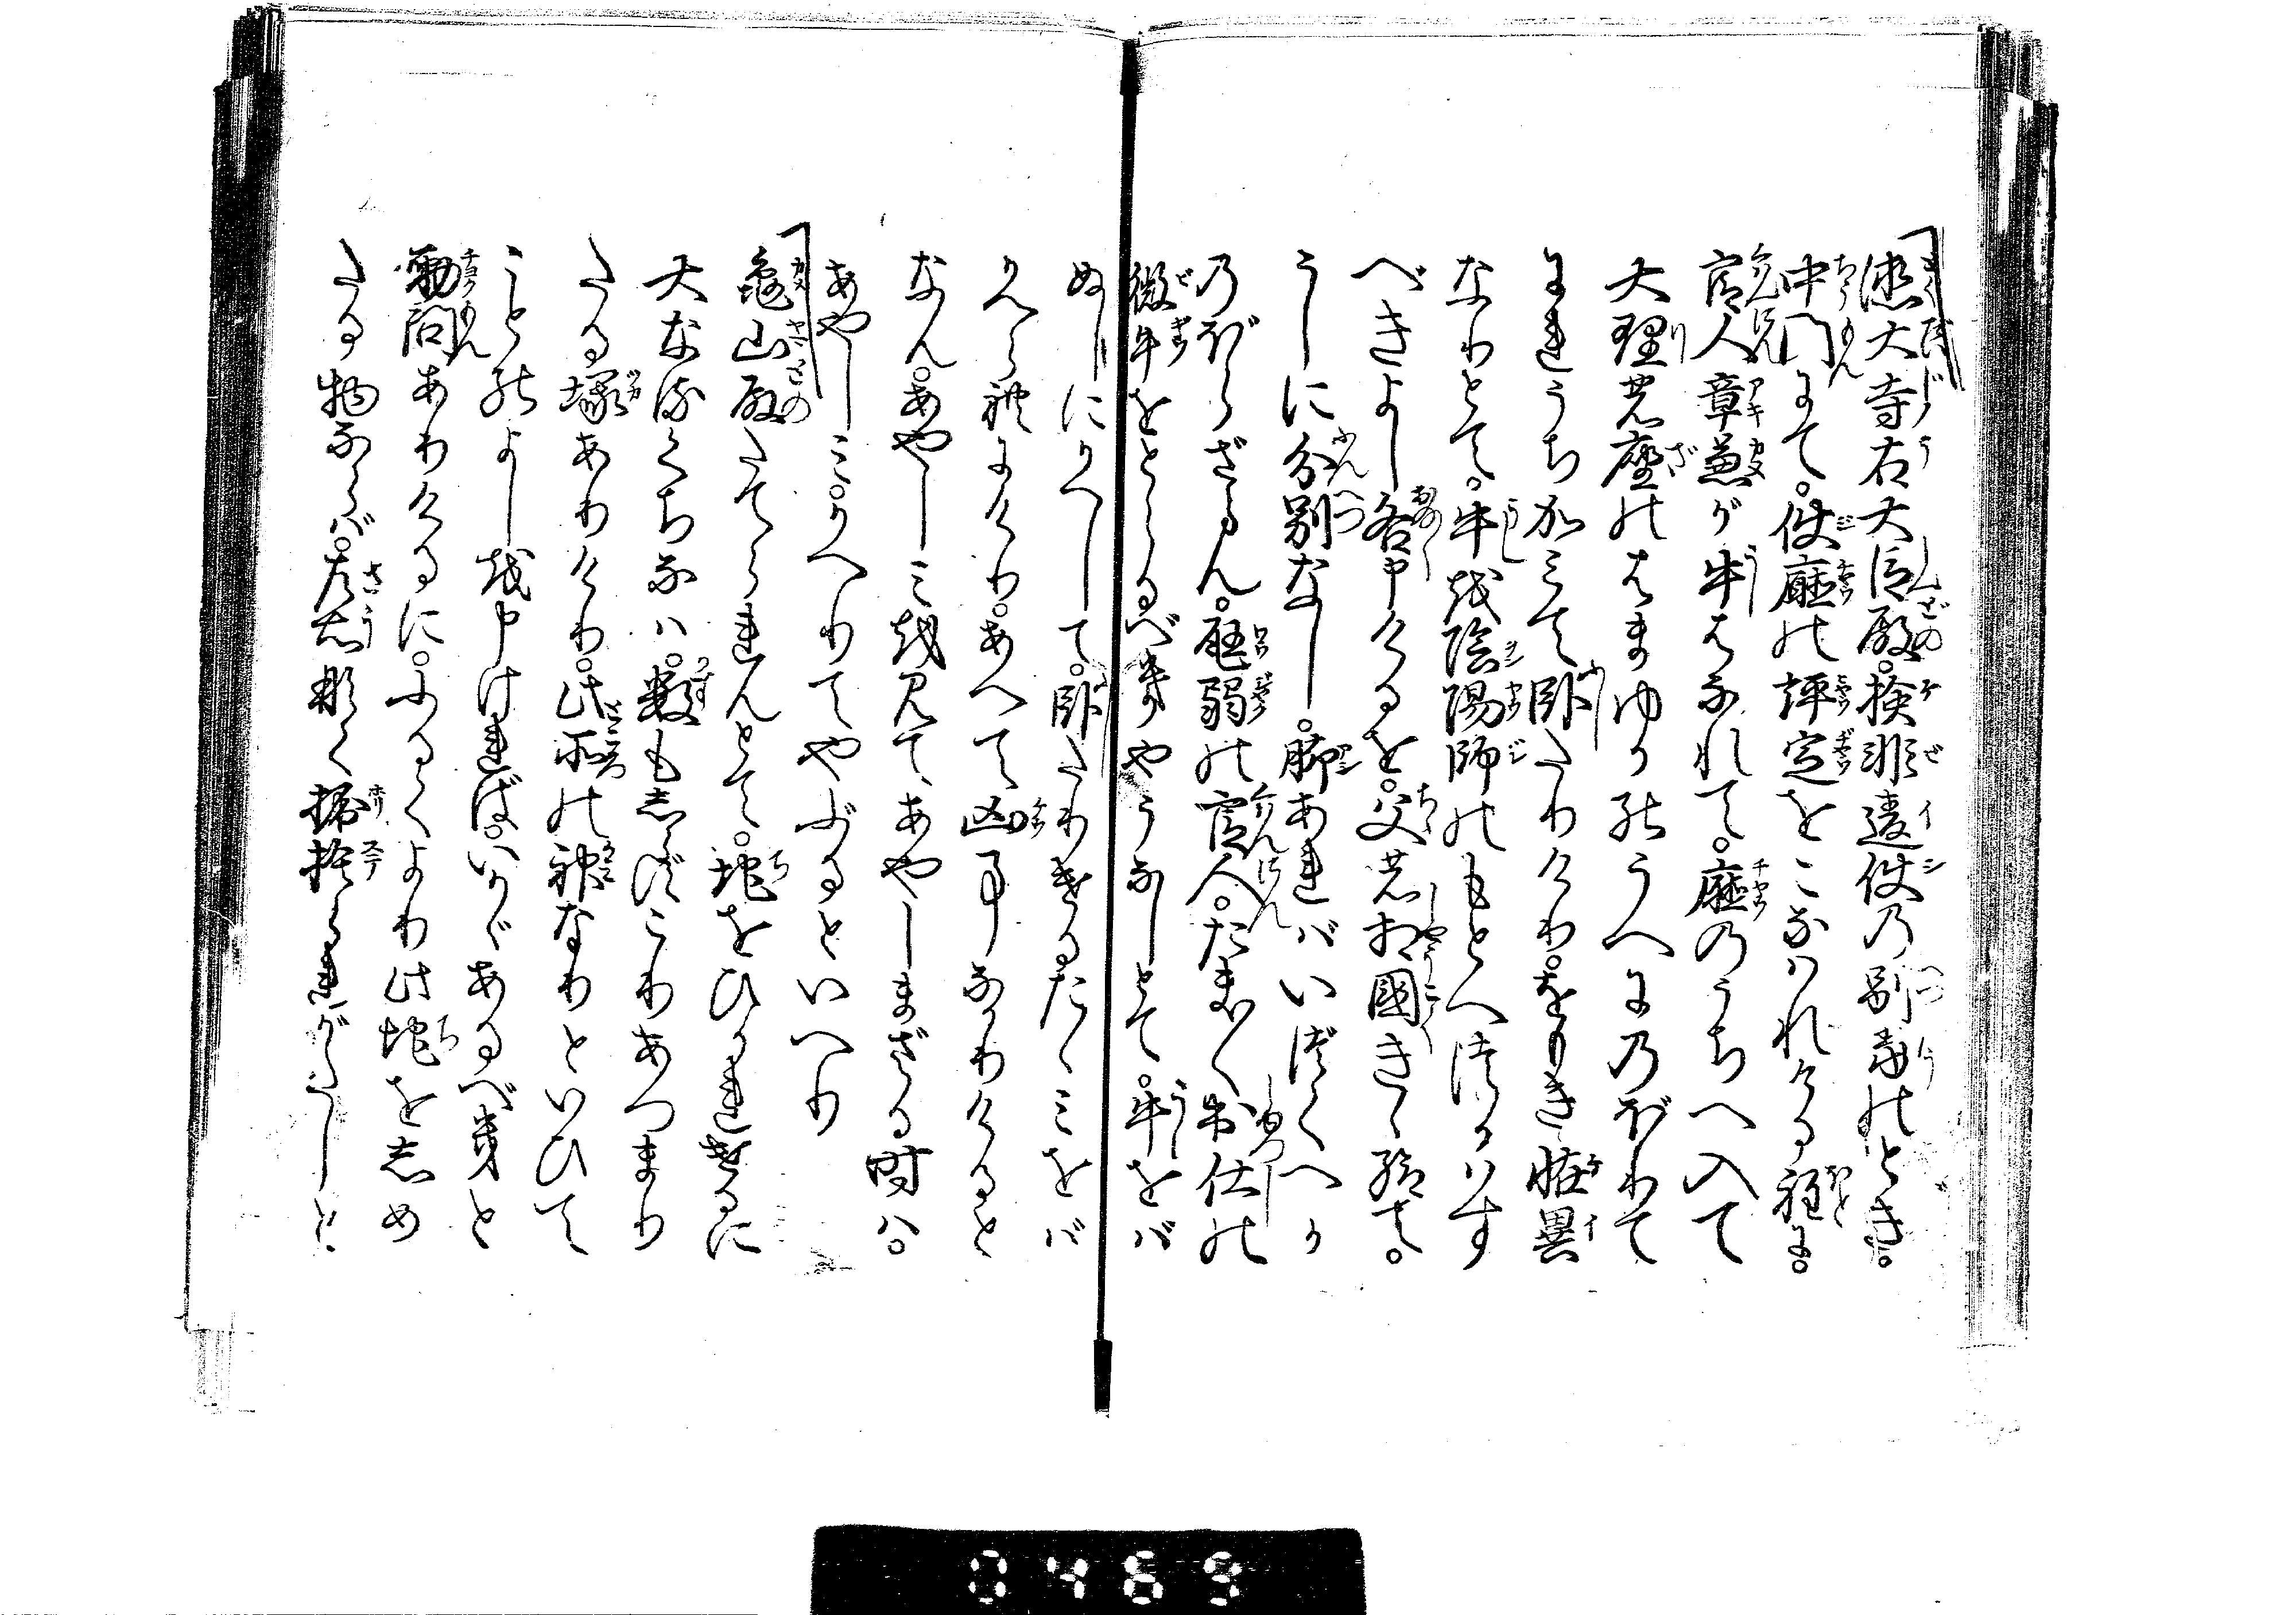 徳大寺右大臣殿。検非違使の別当のとき。
中門にて。使庁の評定をこなハれける程に。
官人章兼が牛はなれて。庁のうちへ入て
大理の座のはまゆかのうへにのぼりて
にれうちかミて臥たりけり。をもき恠異
なりとて。牛を陰陽師のもとへつかハす
べきよし各申けるを。父の相國きゝ給て。
うしに分別なし。脚あれバいづくへか
のぼらざらん。尫弱の官人。たま〳〵出仕の
微牛をとらるべきやうなしとて。牛をバ
ぬしにかへして。臥たりけるたゝミをバ
かへられにけり。あへて凶事なかりけると
なん。あやしミを見てあやしまざる時ハ。
あやしミ。かへりてやぶるといへり
亀山殿たてられんとて。地をひかれけるに
大なるくちなハ。数も志らずこりあつまり
たる塚ありけり。此所の神なりといひて
ことのよしを申ければ。いかゞあるべきと
勅問ありけるに。ふるくより此地を志め
たる物ならば。左右なく掘捨られがたしと